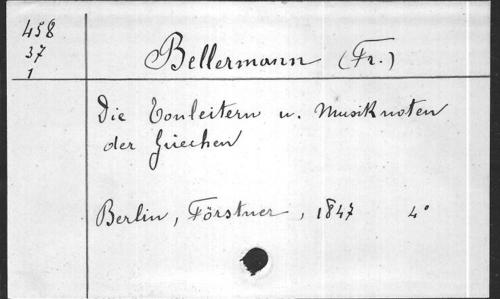 458
37
1
Bellermann (Fr.)
Die Tonleitern u. Musiknoten
der Griechen
Berlin, Förstner, 1847 4°